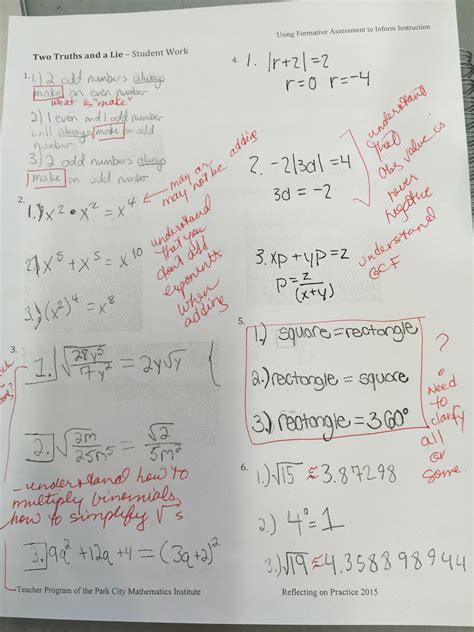 Using Formative Assessment to Inform Instruction
Two Truths and a Lie – Student Work
1. 1.) 2 odd numbers always
make an even number
what is "make"
2) 1 even and 1 odd number
will always make an odd
number.
3.) 2 odd numbers always
make an odd number
2.
1.) x² • x² = x⁴ ← may or may not be adding.
2.) x⁵ + x⁵ = x¹⁰
understand
that you
don't add
exponents
when
adding
3.) (x²)⁴ = x⁸
3.
1. √(28y⁵/7y²) = 2y√y
2. √(2m/25m⁵) = √2/5m²
understand how to
multiply binomials,
how to simplify √s.
3. 9a² + 12a + 4 = (3a+2)²
4. 1. |r+2| = 2
r=0 r=-4
2. -2|3d| = 4
3d = -2
understand
that
abs value is
never
negative
3. xp + yp = z
p = z/(x+y)
understand
GCF
5.
1.) square = rectangle
2.) rectangle = square
3.) rectangle = 360°
?
Need
to
clarify
all
or
some.
6.
1.) √15 ≈ 3.87298
2.) 4⁰ = 1
3.) √19 ≈ 4.358898944
Teacher Program of the Park City Mathematics Institute
Reflecting on Practice 2015